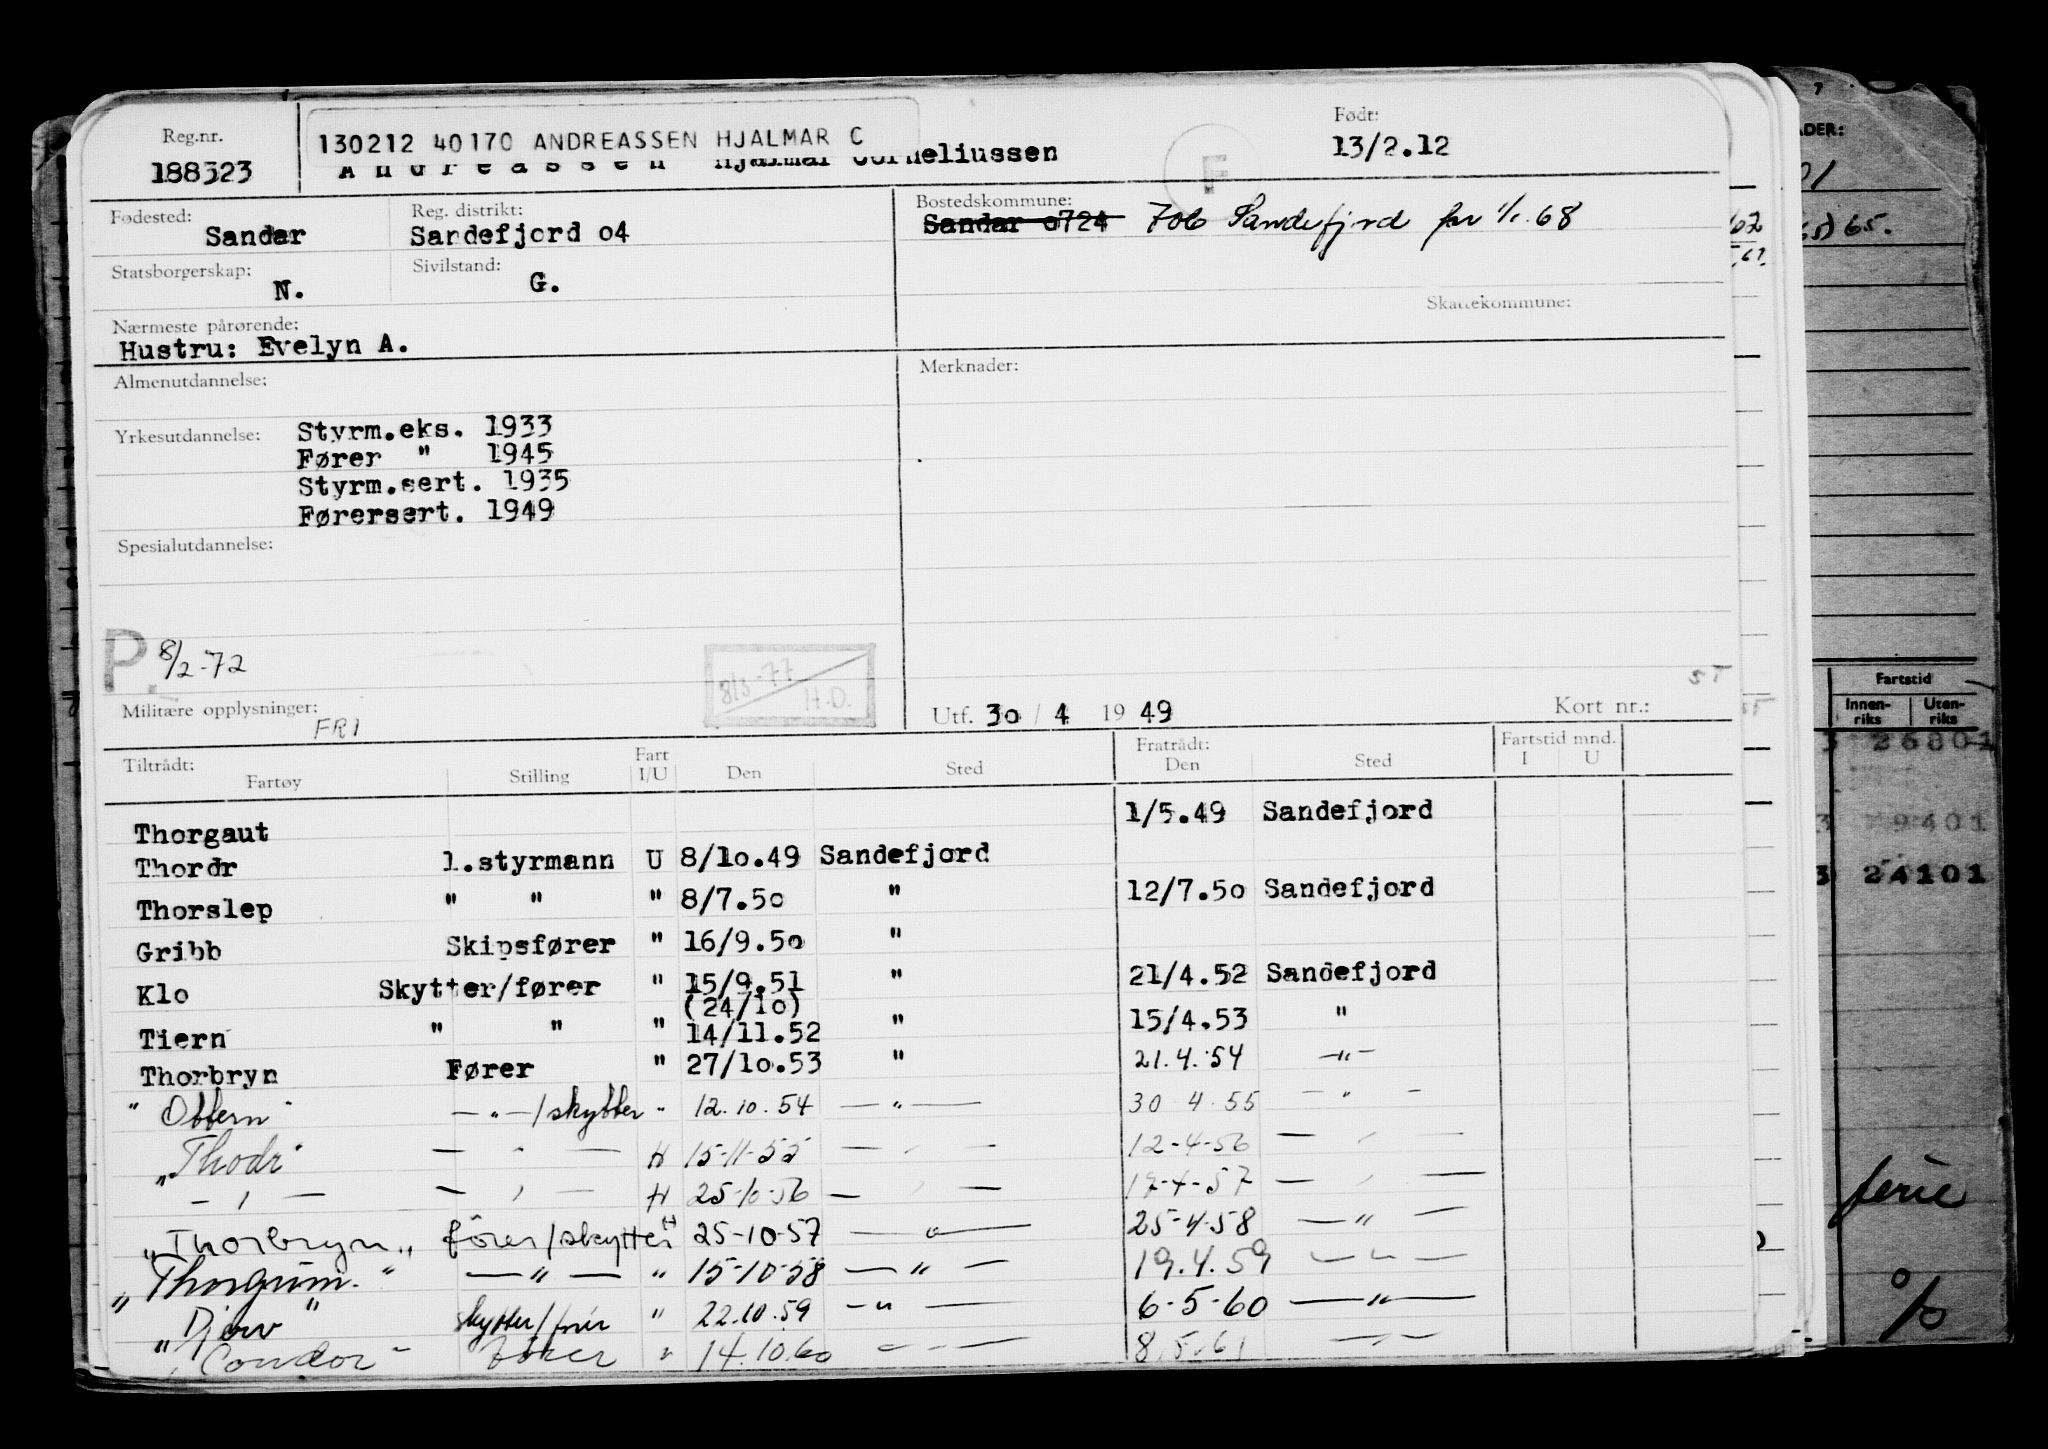 Reg.nr.
188523
130212 40170 ANDREASSEN HJALMAR C
Andreassen Hjalmar Corneliussen
F
Født:
13/2.12
Fødested:
Sandar
Reg. distrikt:
Sandefjord o4
Bostedskommune:
Sandar o724 706 Sandefjord fra 1/1.68
Statsborgerskap:
N.
Sivilstand:
G.
Skattekommune:
Nærmeste pårørende:
Hustru: Evelyn A.
Almenutdannelse:
Merknader:
Yrkesutdannelse: Styrm.eks. 1933
Fører " 1945
Styrm.sert. 1935
Førersert. 1949
Spesialutdannelse:
P. 8/2-72
8/3-77
H.D.
Militære opplysninger:
FRI
Utf. 30/4 1949 Kort nr.:
Tiltrådt: Fartøy Stilling Fart I/U Den Sted Fratrådt: Den Sted Fartstid mnd. I U
Thorgaut 1/5.49 Sandefjord
Thordr 1.styrmann U 8/10.49 Sandefjord
Thorslep " " " 8/7.50 " 12/7.50 Sandefjord
Gribb Skipsfører " 16/9.50 "
Klo Skytter/fører " 15/9.51 " 21/4.52 Sandefjord
(24/10)
Tiern " " " 14/11.52 " 15/4.53 "
Thorbryn Fører " 27/10.53 " 21.4.54 -"-
"Obbern" -"-/skytter " 12.10.54 -"- 30 4.55 - " -
"Thodr" - " - H 15-11-55 - " - 12-4-56 - " -
- " - - " - H 25-10-56 - " - 17-4-57 - " -
"Thorbryn" fører/skytter H 25-10-57 -"- 25-4-58 -"-
"Thorgrim" -"- " 15-10-58 -"- 19.4.59 -"-
"Djerv" skytter/fører " 22.10.59 -"- 6-5-60 -"-
"Condor" fører " 14.10.60 -"- 8.5.61 -"-
ADER:
65.
Fartstid
Innen-riks Uten-riks
26801
9401
24101
ferie
%